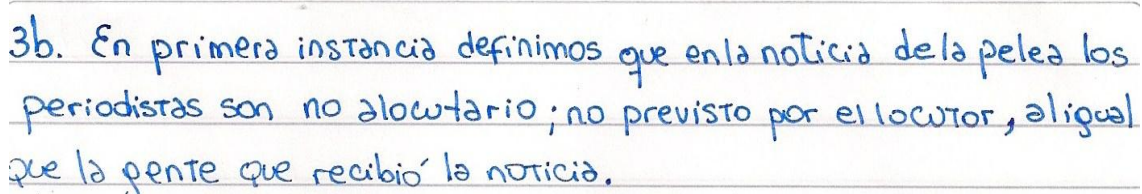 3b. En primera instancia definimos que en la noticia de la pelea los
periodistas son no alocutario; no previsto por el locutor, al igual
que la gente que recibió la noticia.